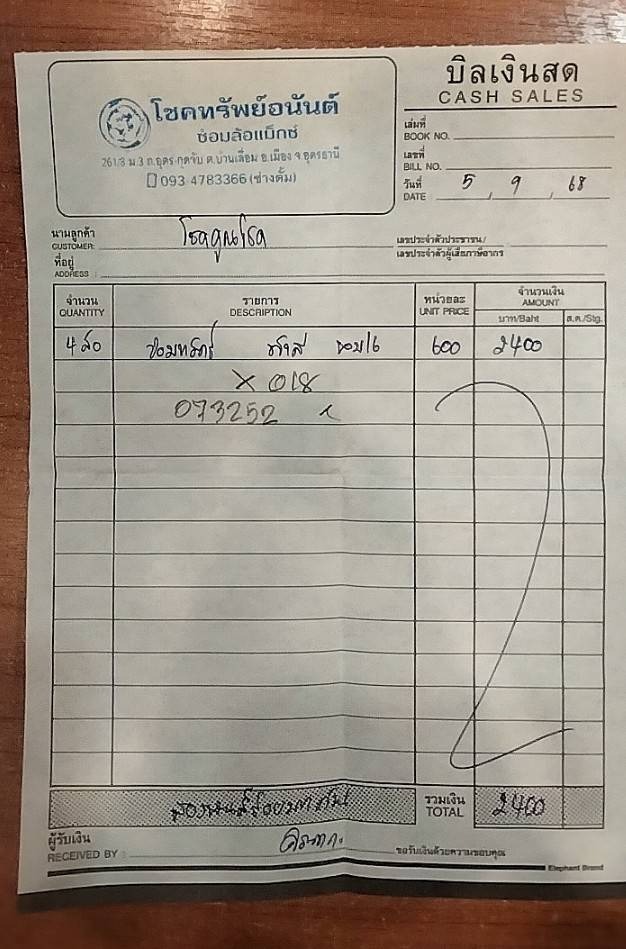 บิลเงินสด
CASH SALES
โชคทรัพย์อนันต์
ซ่อมล้อแม็กซ์
261/3 ม.3 ถ.อุดร-กุดจับ ต.บ้านเลื่อม อ.เมือง จ.อุดรธานี
093-4783366 (ช่างตั้ม)
เล่มที่
BOOK NO.
เลขที่
BILL NO.
วันที่ 5 , 9 , 68
DATE
นามลูกค้า
CUSTOMER:
เลขประจำตัวประชาชน/
เลขประจำตัวผู้เสียภาษีอากร
ที่อยู่
ADDRESS :
จำนวน รายการ หน่วยละ จำนวนเงิน
QUANTITY DESCRIPTION UNIT PRICE AMOUNT
บาท/Baht ส.ต./Stg.
4 ล้อ ขอบ16 600 2400
X 018
073252
รวมเงิน 2400
TOTAL
ผู้รับเงิน
RECEIVED BY ขอรับเงินด้วยความขอบคุณ
Elephant Brand